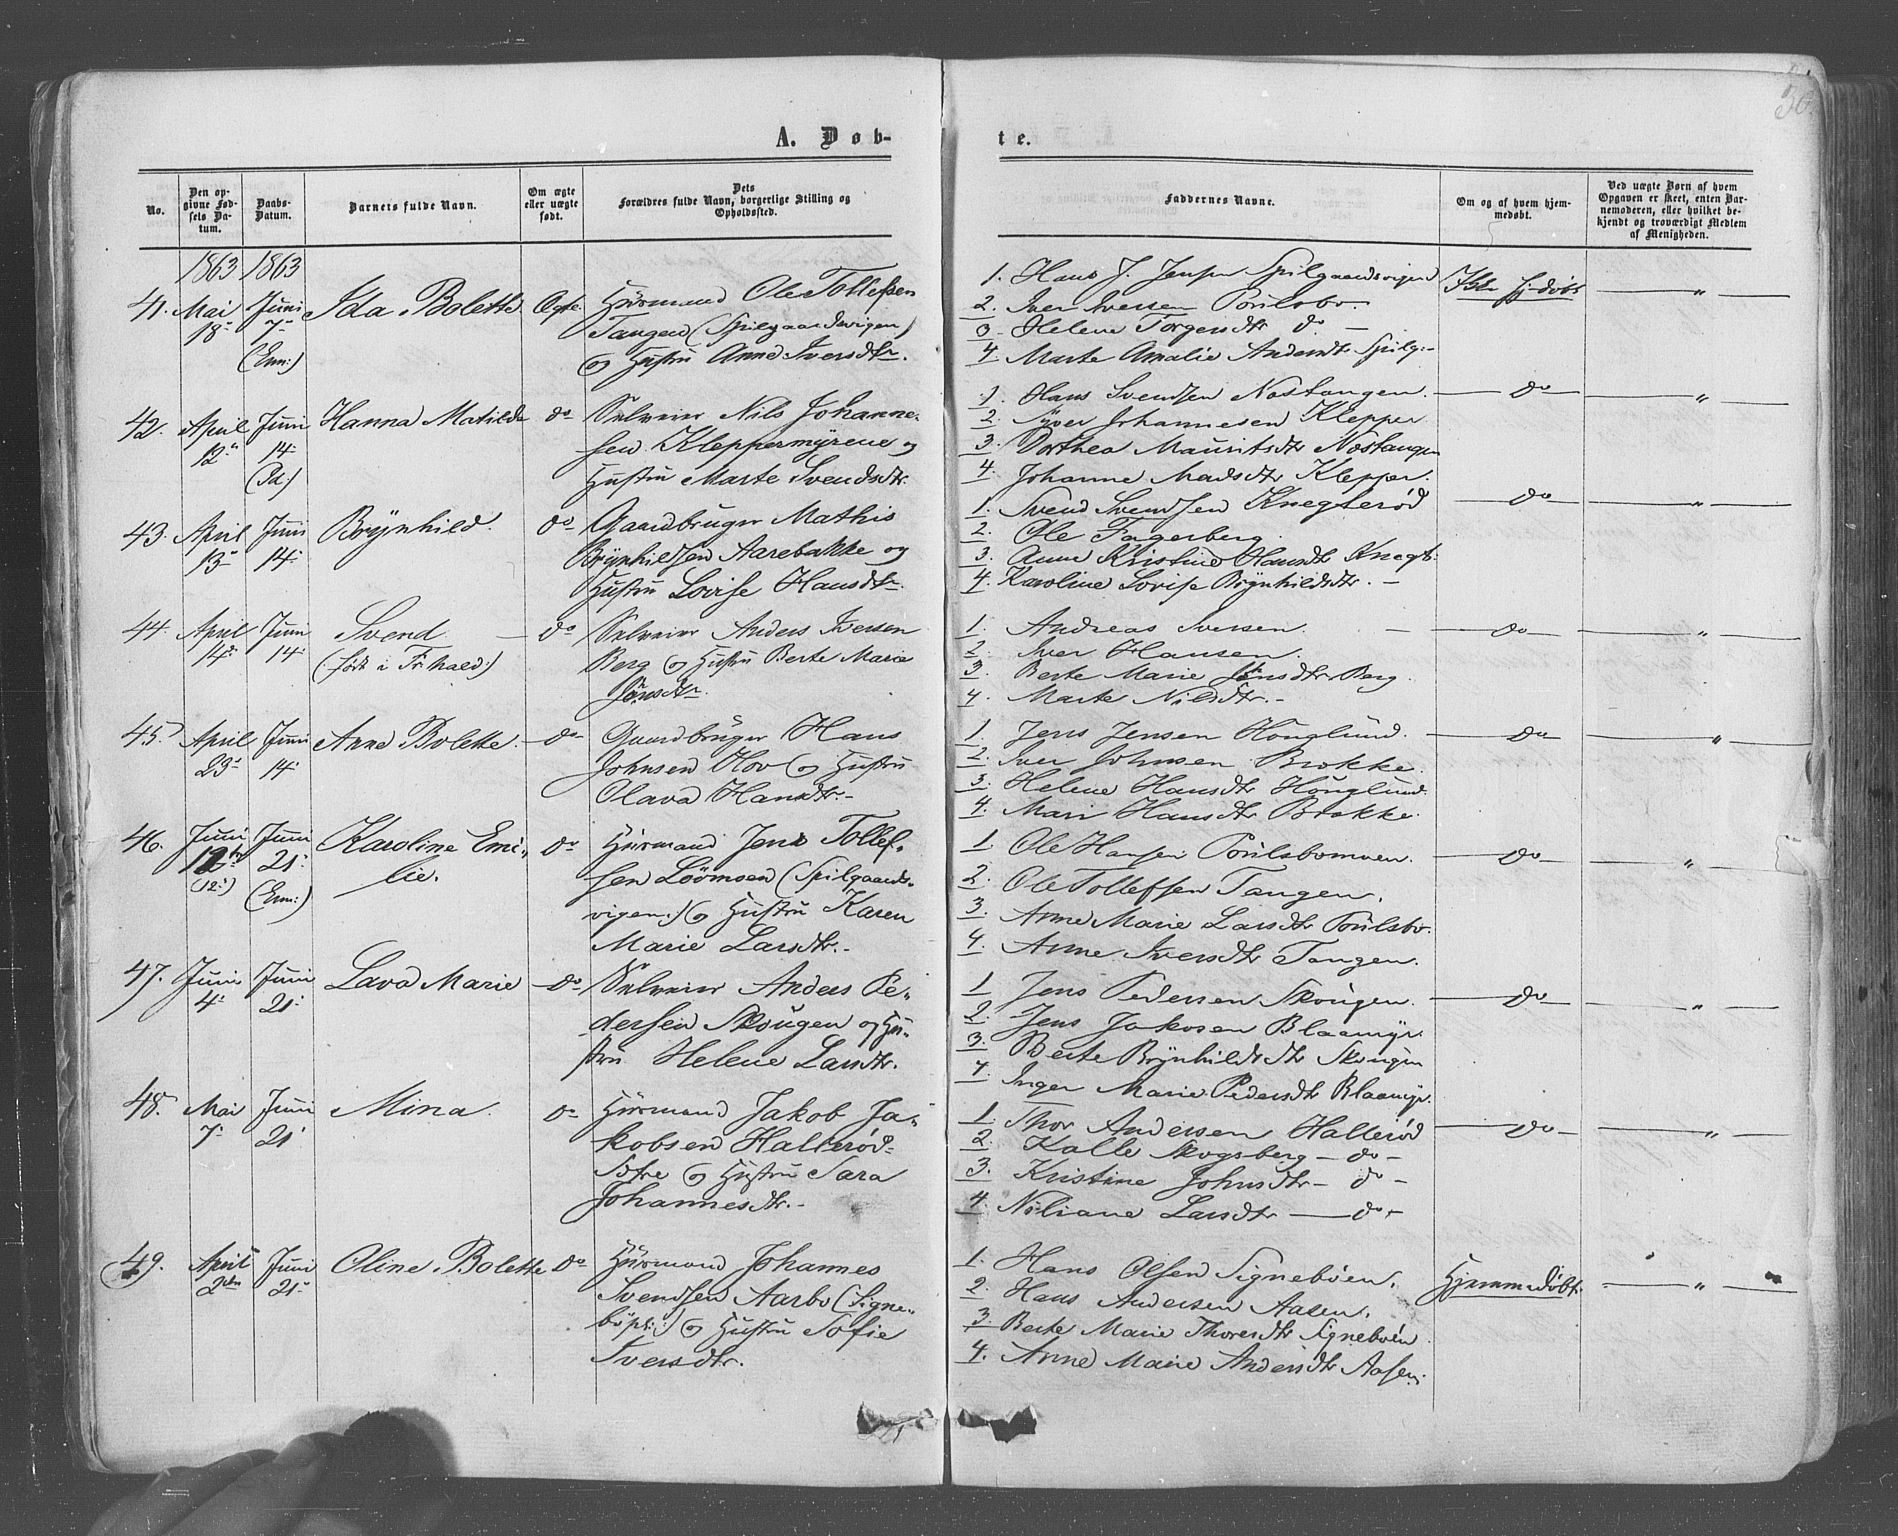 30.
A. Døb-
te.
No.
Den op-
givne Fød-
sels Da-
tum.
Daabs-
Datum.
Barnets fulde Navn.
Om ægte
eller uægte
født.
Dets
Forældres fulde Navn, borgerlige Stilling og
Opholdssted.
Faddernes Navne.
Om og af hvem hjem-
medøbt.
Ved uægte Børn af hvem
Opgaven er skeet, enten Bar-
nemoderen, eller hvilket be-
kjendt og troværdigt Medlem
af Menigheden.
1863 1863
41. Mai 18 Juni 7 (Enn:) Ida Bolette Ægte.
Huusmand Ole Tollefsen
Tangen (Spilgaardsvigen)
og Hustru Anne Iversdtr.
1. Hans J. Jensen Spilgaardsvigen
2. Iver Iversen Poulsbo
3. Helene Torgersdtr do
4. Marte Amalie Andersdtr Spilg:
Ikke hj.døbt "
42. April 12 Juni 14 (Id:) Hanna Matilde do
Selveier Nils Johanne-
sen Kleppermyrene og
Hustru Marte Svendsdtr.
1. Hans Svendsen Nostangen.
2. Syver Johannesen Klepper
3. Dorthea Mauritsdtr Nostangen
4. Johanne Madsdtr Klepper.
do "
43. April 13 Juni 14 Brynhild. do
Gaardbruger Mathis
Brynhildsen Aarebakke og
Hustru Lovise Hansdtr.
1. Svend Svendsen Knegterød
2. Ole Fagerberg.
3. Anne Kristine Hansdtr Knegt:
4. Karoline Lovise Brynhildsdtr. -
do "
44. April 14 Juni 14 Svend.
(født i Fr:hald:) do
Selveier Anders Iversen
Berg og Hustru Berte Marie
Jonsdtr.
1. Andreas Iversen.
2. Iver Hansen.
3. Berte Marie Jonsdtr Berg.
4. Marte Nilsdtr. -
do "
45. April 23 Juni 14 Anne Bolette. do
Gaardbruger Hans
Johnsen Hov og Hustru
Olava Hansdtr.
1. Jens Jensen Houglund.
2. Iver Johnsen Brokke.
3. Helene Hansdtr Houglund.
4. Mari Hansdtr Brokke.
do "
46. Juni 12 (12:) Juni 21 (Enn:) Karoline Emi-
lie. do
Huusmand Jens Tollef-
sen Löömsen (Spilgaards-
vigen:) og Hustru Karen
Marie Larsdtr.
1. Ole Hansen Poulsbomoen.
2. Ole Tollefsen Tangen.
3. Anne Marie Larsdtr Poulsbo.
4. Anne Iversdtr Tangen.
do "
47. Juni 4 Juni 21 Lava Marie do
Selveier Anders Pe-
dersen Skougen og Hu-
stru Helene Larsdtr.
1. Jens Pedersen Skougen.
2. Jens Jakosen Blaamyr.
3. Berte Brynhildsdtr Skougen
4. Inger Marie Pedersdtr Blaamyr.
do "
48. Mai 7 Juni 21 Mina. do
Huusmand Jakob Ja-
kobsen Hallerød-
Søtre og Hustru Sara
Johannesdtr.
1. Thor Andersen Hallerød
2. Kalle Skogsberg - do -
3. Kristine Johnsdtr - do -
4. Niliane Larsdtr - do -
do "
49. April 2den Juni 21 Oline Bolette do
Huusmand Johannes
Svendsen Aarbo (Signe-
böpl:) og Hustru Sofie
Iversdtr.
1. Hans Olsen Signebøen.
2. Hans Andersen Aasen.
3. Berte Marie Thoresdtr Signebøen
4. Anne Marie Andersdtr Aasen.
Hjemmedøbt. "